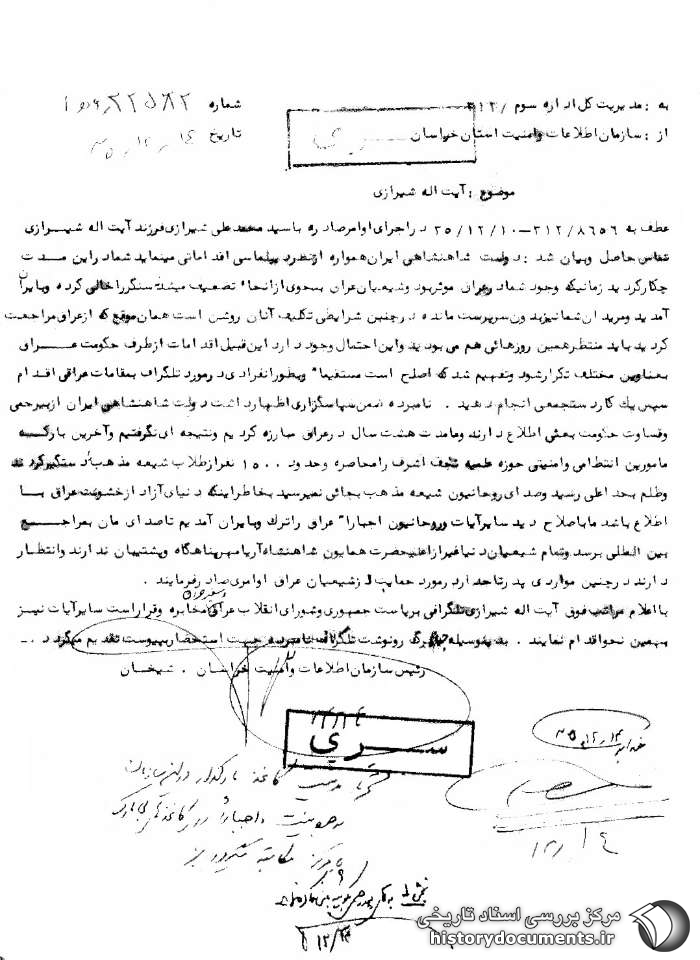 به : مدیریت کل اداره سوم /۳۱۲
شماره ۲۲۵۸۲
از : سازمان اطلاعات وامنیت استان خراسان
تاریخ ۳۵٫۱۲٫۱۴
سری
موضوع : آیت اله شیرازی
عطف به ۳۱۲/۸۶۵۶–۳۵/۱۲/۱۰ در اجرای اوامر صادره با سید محمد علی شیرازی فرزند آیت اله شیرازی
تماس حاصل وبیان شد : دولت شاهنشاهی ایران همواره از نظر دیپلماسی اقداماتی مینماید شماد راین مدت
چکار کردید زمانیکه وجود شماد ر عراق موثر بود وشیعیان عراق بنحوی از انحا تضعیف میشد سنگر راخالی کرده وبایران
آمدید ومریدان شما نیز بدون سرپرست مانده در چنین شرایطی تکلیف آنان روشن است همان موقع که از عراق مراجعت
کردید باید منتظر همین روزهائی هم می بودید واین احتمال وجود دارد این قبیل اقدامات از طرف حکومت عراق
بعناوین مختلف تکرار شود وتفهیم شد که اصلح است مستقیما وبطور انفرادی در مورد تلگراف بمقامات عراقی اقدام
سپس یک کار دستجمعی انجام دهید . نامبرده ضمن سپاسگزاری اظهار داشت دولت شاهنشاهی ایران از بیرحمی
وقساوت حکومت بعثی اطلاع دارند ومامدت هشت سال در عراق مبارزه کردیم ونتیجه ای نگرفتیم وآخرین بار که
مامورین انتظامی وامنیتی حوزه علمیه نجف اشرف رامحاصره وحدود ۱۵۰۰ نفر از طلاب شیعه مذهب دستگیر کردند
وظلم بحد اعلی رسید وصدای روحانیون شیعه مذهب بجائی نمیرسید بخاطر اینکه دنیای آزاد از خشونت عراق با
اطلاع باشد ماباصلاح دید سایر آیات وروحانیون اجبارا عراق راترک وبایران آمدیم تاصدای مان بمراجع
بین المللی برسد وتمام شیعیان دنیا غیر از اعلیحضرت همایون شاهنشاه آریامهر پناهگاه وپشتیبان ندارند وانتظار
دارند در چنین مواردی پدر تاجدار در مورد حمایت از شیعیان عراق اوامری صادر فرمایند .
بااعلام مراتب فوق آیت اله شیرازی تلگرافی بریاست جمهوری وشورای انقلاب عراق مخابره وقرار است سایر آیات نیز
بهمین نحو اقدام نمایند . بدینوسیله رونوشت تلگراف نامبرده جهت استحضار بپیوست تقدیم میگردد .
رئیس سازمان اطلاعات وامنیت خراسان . شیخان
۱۲/۱۴
سری
۳۵٫۱۲٫۱۴
۱۲/۱۴
۱۲/۱۴
مرکز بررسی اسناد تاریخی
historydocuments.ir